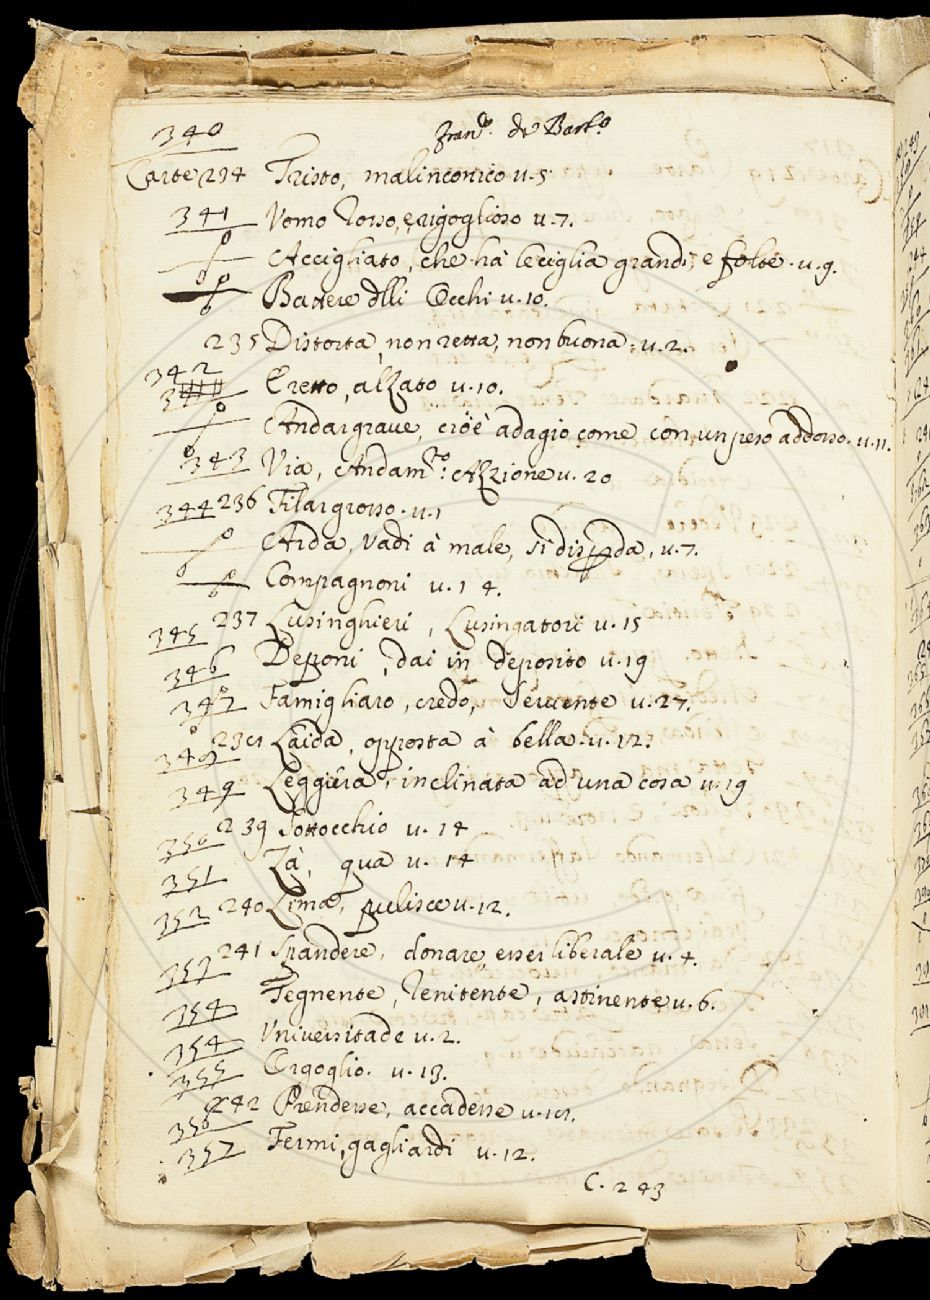 340 Fran.co de Barb.o
Carte 234 Tristo, malinconico u. 5.
341 Vomo Torso, e rigoglioso u. 7.
Accigliato, che hà le ciglia grandi, e folte. u. 9.
Battere dlli Occhi u. 10.
235 Distorta, non retta, non buona. u. 2.
342 Eretto, alzato u. 10.
Andar graue, cioè adagio come con un peso addosso. u. 11.
343 Via, Andam.to: Azzione u. 20
344 236 Filargrosso. u. 1
Arda, vadi à male, si disperda, u. 7.
Compagnoni u. 14.
345 237 Lusinghieri, Lusingatori u. 15
346 Deponi, dai in deposito u. 19
347 Famigliaro, credo, Seruente u. 27.
348 238 Laida, opposta à bella. u. 12.
349 Leggiera, inclinata ad una cosa u. 19
350 239 Sottocchio u. 14
351 Zà, qua u. 14
352 240 Lima, pulisce u. 12.
353 241 Spandere, donare, esser liberale u. 4.
354 Tegnente, Tenitente, astinente u. 6.
354 Vniuersitade u. 2.
355 Orgoglio. u. 13.
356 242 Prendesse, accadesse u. 18.
357 Fermi, gagliardi u. 12.
C. 243